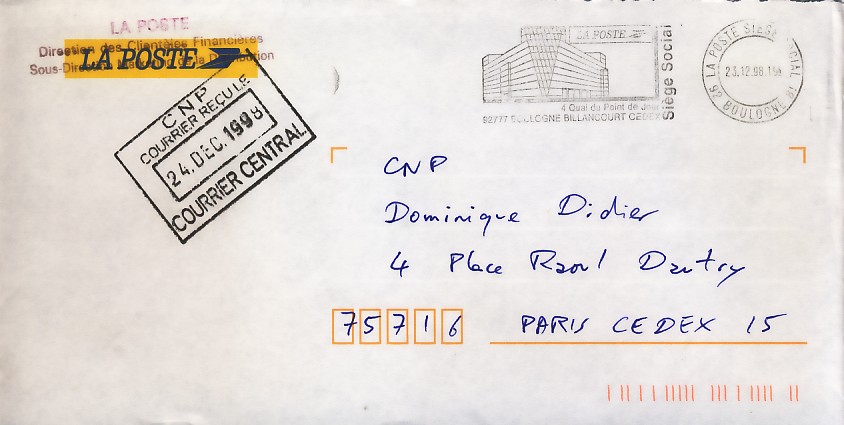 LA POSTE
Direction des Clientèles Financières
Sous-Direction de la Distribution
LA POSTE
CNP
COURRIER REÇU LE
24.DEC.1998
COURRIER CENTRAL
LA POSTE
Siège Social
4 Quai du Point de Jour
92777 BOULOGNE BILLANCOURT CEDEX
LA POSTE SIEGE SOCIAL
23.12.98
92 BOULOGNE 92
CNP
Dominique Didier
4 Place Raoul Dautry
75716 PARIS CEDEX 15